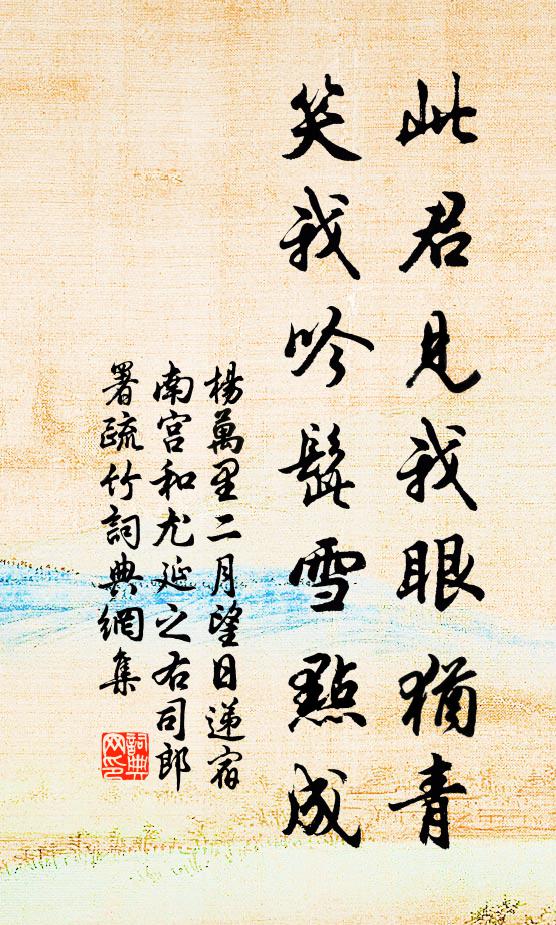 此君見我眼猶青
笑我吟髭雪點成
楊萬里二月望日递宿
南宮和尤延之右司郎
署疏竹詞典網集
詞典
网印